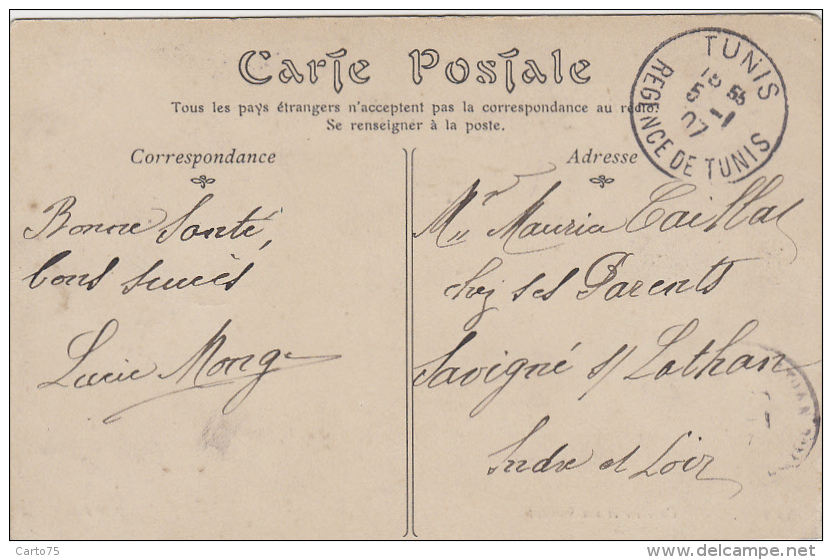 Carte Postale
Tous les pays étrangers n'acceptent pas la correspondance au recto.
Se renseigner à la poste.
TUNIS
15 55
5 -1
07
REGENCE DE TUNIS
Correspondance
Bonne Santé,
bons succès
Lucie Monge
Adresse
Mr Maurice Caillat
chez ses Parents
Savigné s/ Lathan
Indre et Loir
Carto75
www.delcampe.net